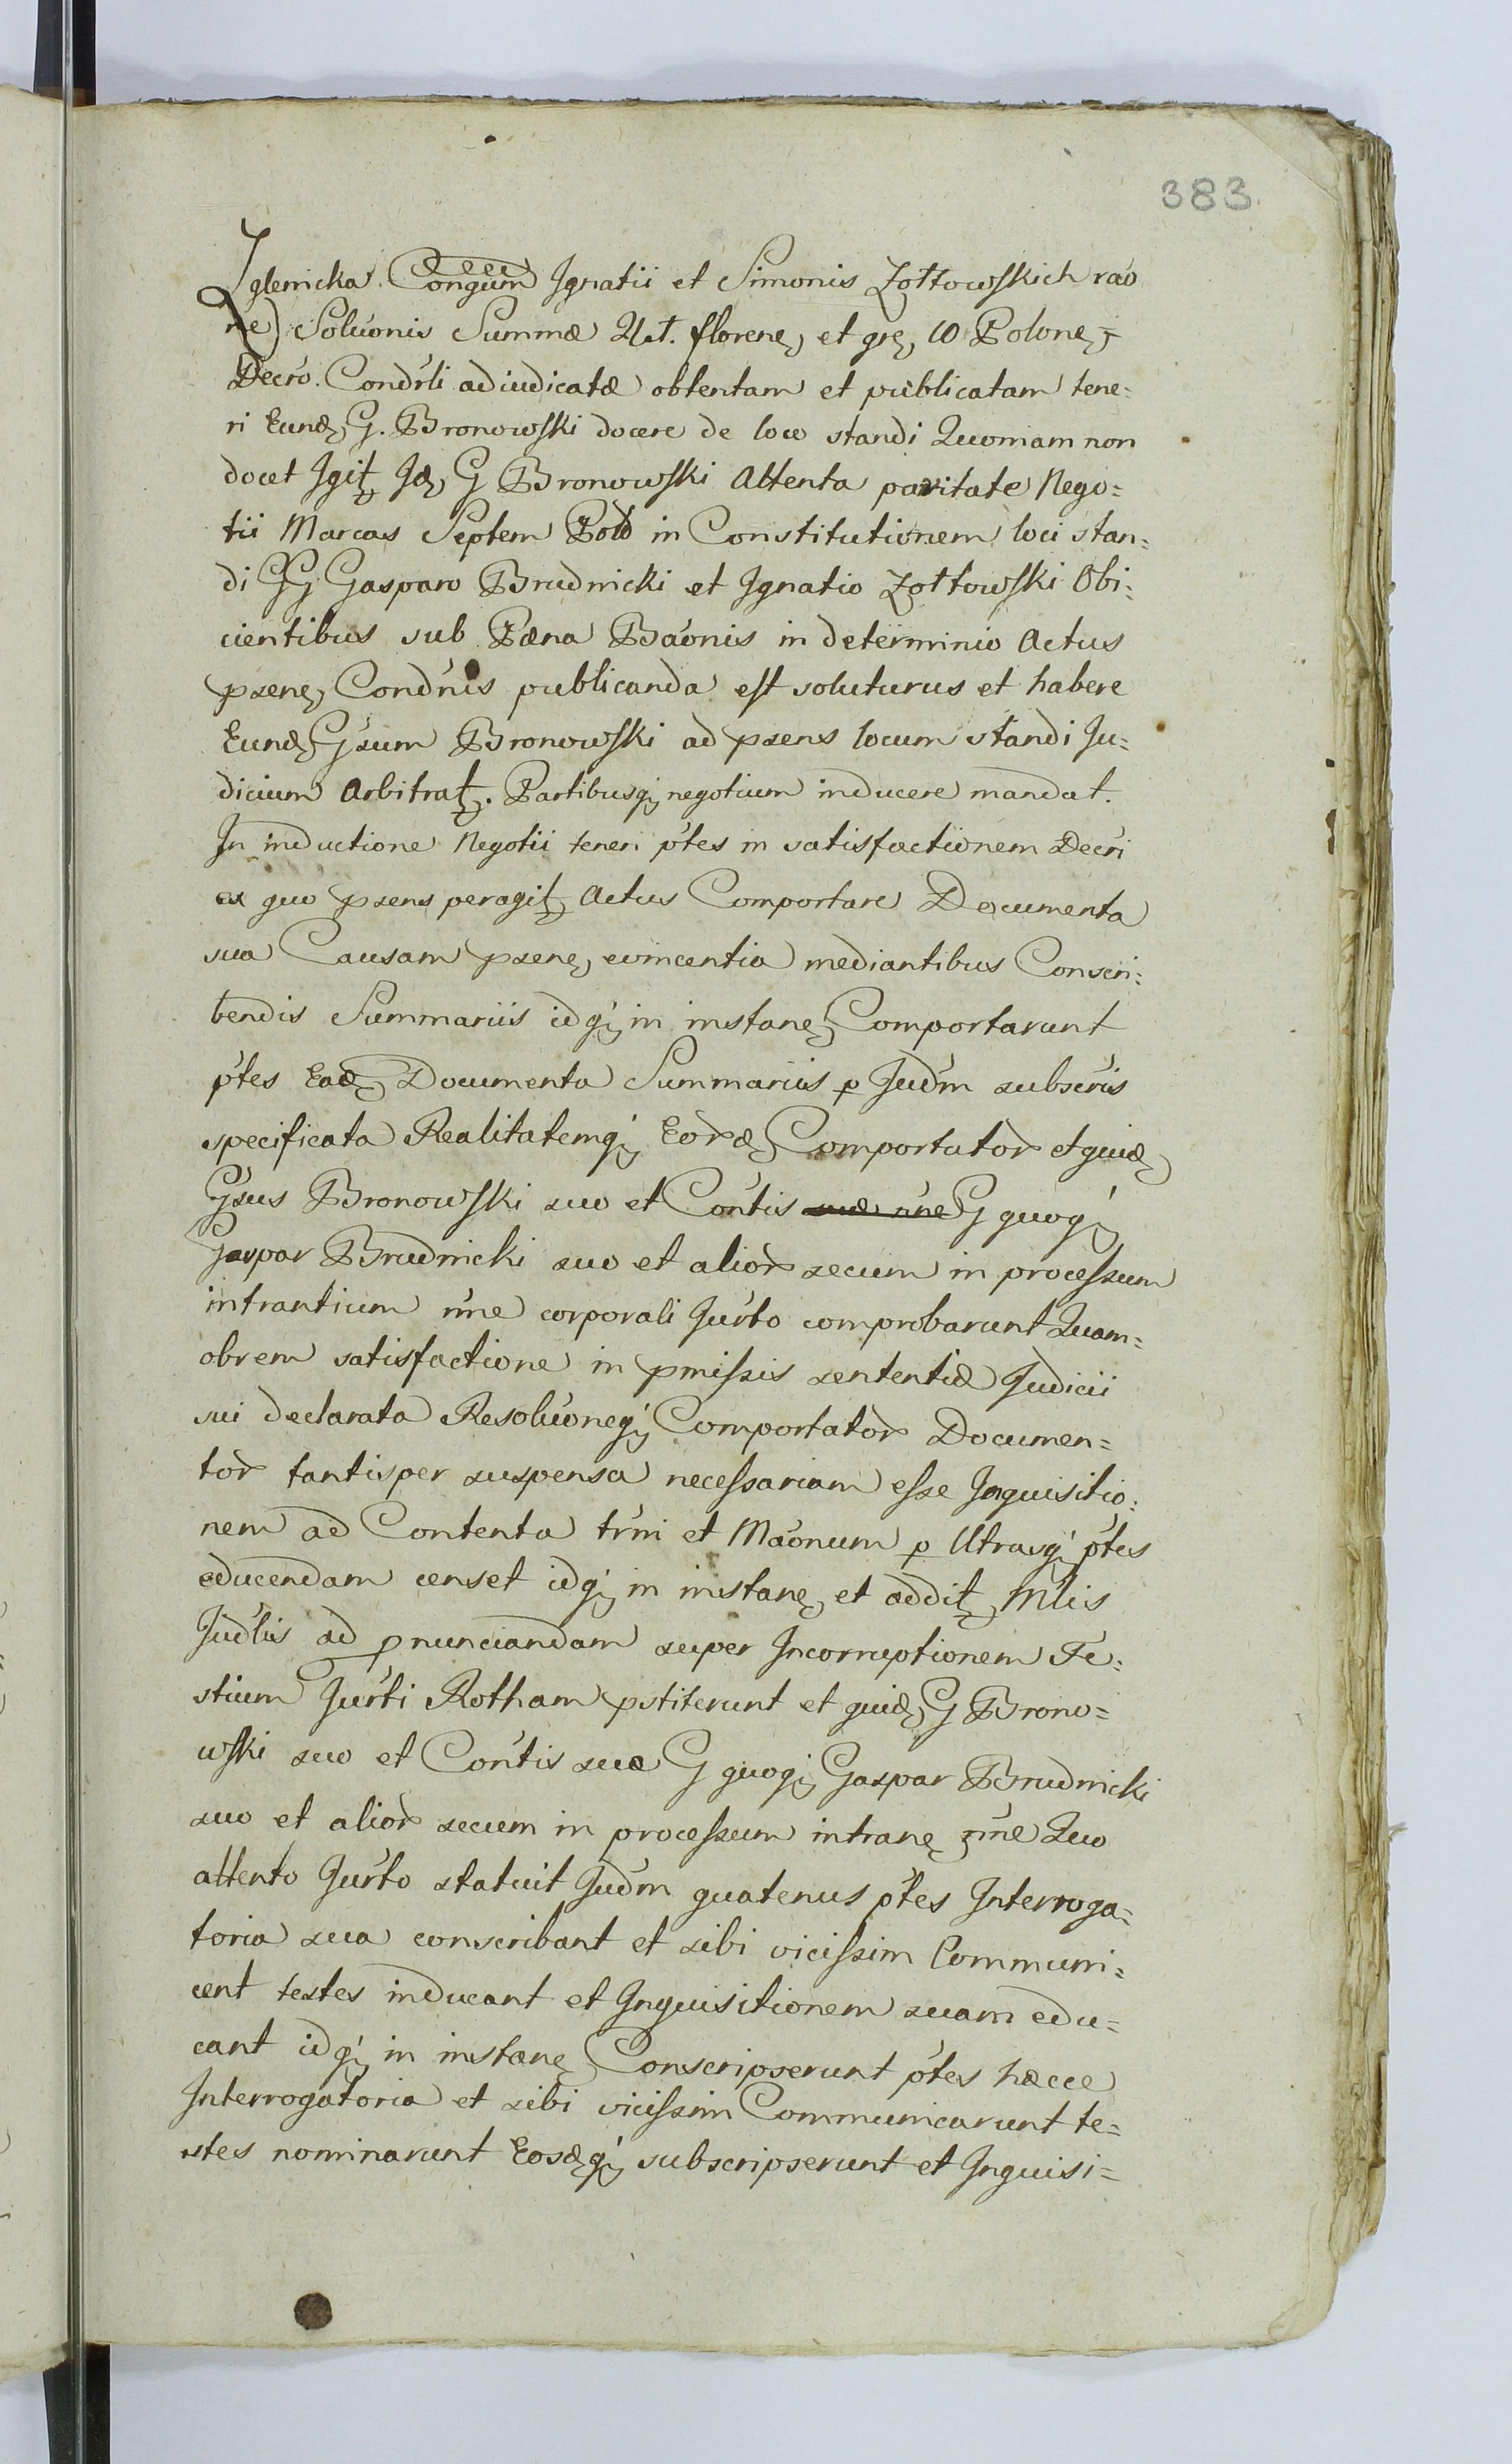 383
Iglenicka. Congum Ignatii et Simonis Żołtowskich rao
ne) Soluonis Summæ flore͠n et gr 10 Polon
Decro. Condrli adiudicatæ obtentam et publicatam tene=
ri Eund G. Bronowski docere de loco standi Quoniam non
docet Igit Id G Bronowski Attenta paritate Nego=
tii Marcas Septem Pold in Constitutionem loci stan=
di GG Gasparo Brudnicki et Ignatio Żołtowski Obi=
cientibus sub Pæna Baonis in determinio Actus
psen Condnis publicanda est soluturus et habere
Eund Gsum Bronowski ad psens locum standi Ju=
dicium Arbitrat. Partibusq negotium inducere mandat.
In inductione Negotii teneri ptes in satisfactionem Decri
ex quo psens peragit Actus Comportare Documenta
sua Causam psen evincentia mediantibus Conscri=
bendis Summariis idq in instan Comportarunt
ptes Ead Documenta Summariis p Judm subscris
specificata Realitatemq Eord Comportator et quid
Gsus Bronowski suo et Contis suæ nne G quoq
Gaspar Brudnicki suo et alior secum in processum
intrantium nne corporali Jurto comprobarunt Quam=
obrem satisfactione in pmissis sententiæ Judicii
sui declarata Resoluoneq Comportator Documen=
tor tantisper suspensa necessariam esse Inquisitio=
nem ad Contenta trni et Maonum p Utrasq ptes
educendam censet idq in instan et addit Mlis
Judlis ad pnunciandam super Incorruptionem Te=
stium Jurti Rotham pstiterunt et quid G Brono=
wski suo et Contis suæ G quoq Gaspar Brudnicki
suo et alior secum in processum intran nne Quo
attento Jurto statuit Judm quatenus ptes Interroga=
toria sua conscribant et sibi vicissim Communi=
cent testes inducant et Inquisitionem suam edu=
cant idq in instan Conscripserunt ptes hæcce
Interrogatoria et sibi vicissim Communicarunt te=
stes nominarunt Eosdq subscripserunt et Inquisi=